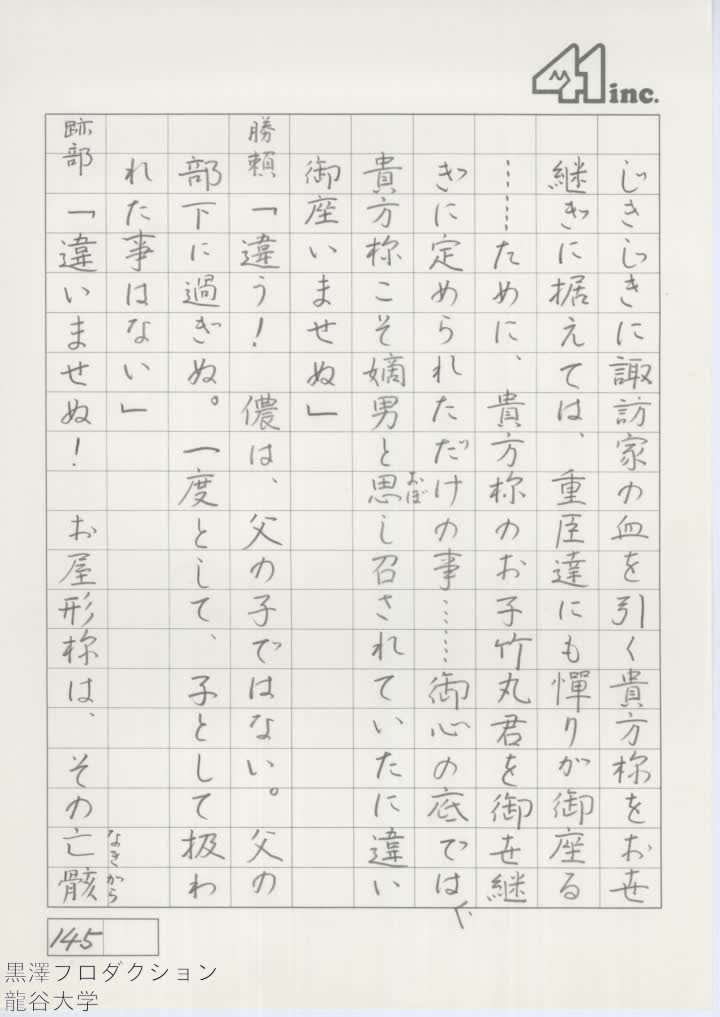 41 inc.
じきじきに諏訪家の血を引く貴方様をお世
継ぎに据えては、重臣達にも憚りが御座る
……ために、貴方様のお子竹丸君を御世継
ぎに定められただけの事……御心の底では、
貴方様こそ嫡男と思し召されていたに違い
おぼ
御座いませぬ」
勝頼「違う! 儂は、父の子ではない。父の
部下に過ぎぬ。一度として、子として扱わ
れた事はない」
跡部「違いませぬ! お屋形様は、その亡骸
なきから
145
黒澤プロダクション
龍谷大学